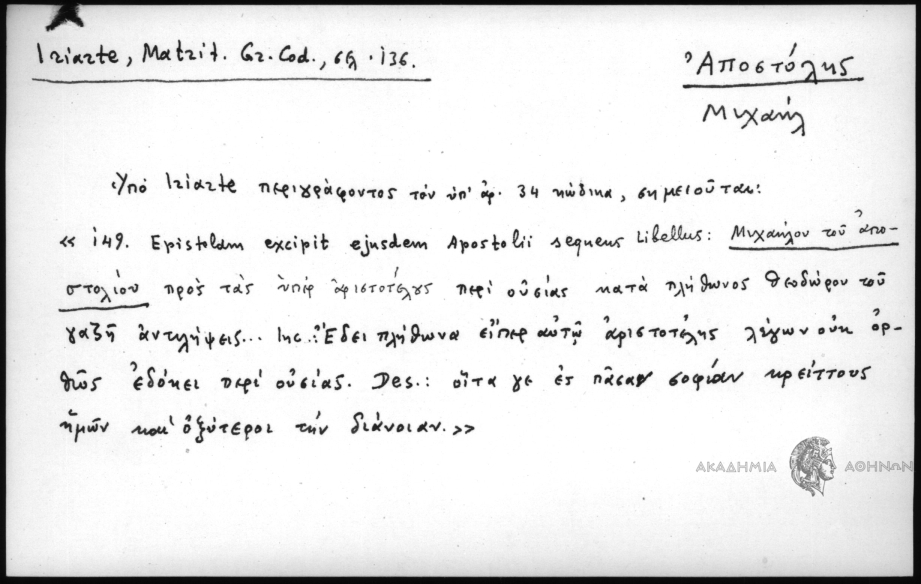 Iriarte, Matrit. Gr. Cod., σελ. 136.
Ἀποστόλης
Μιχαήλ
Ὑπό Iriarte περιγράφοντος τόν ὑπ' ἀρ. 34 κώδικα, σημειοῦται:
«149. Epistolam excipit ejusdem Apostolii sequens Libellus: Μιχαήλου τοῦ ἀπο-
στολίου πρὸς τὰς ὑπέρ ἀριστοτέλους περί οὐσίας κατὰ πλήθωνος θεοδώρου τοῦ
γαζῆ ἀντιλήψεις... Inc.: Ἔδει πλήθωνα εἴπερ αὐτῷ ἀριστοτέλης λέγων οὐκ ὀρ-
θῶς ἐδόκει περί οὐσίας. Des.: οἵτα γε ἐς πᾶσαν σοφίαν κρείττους
ἡμῶν καί ὀξύτεροι τήν διάνοιαν.»
ΑΚΑΔΗΜΙΑ ΑΘΗΝΩΝ